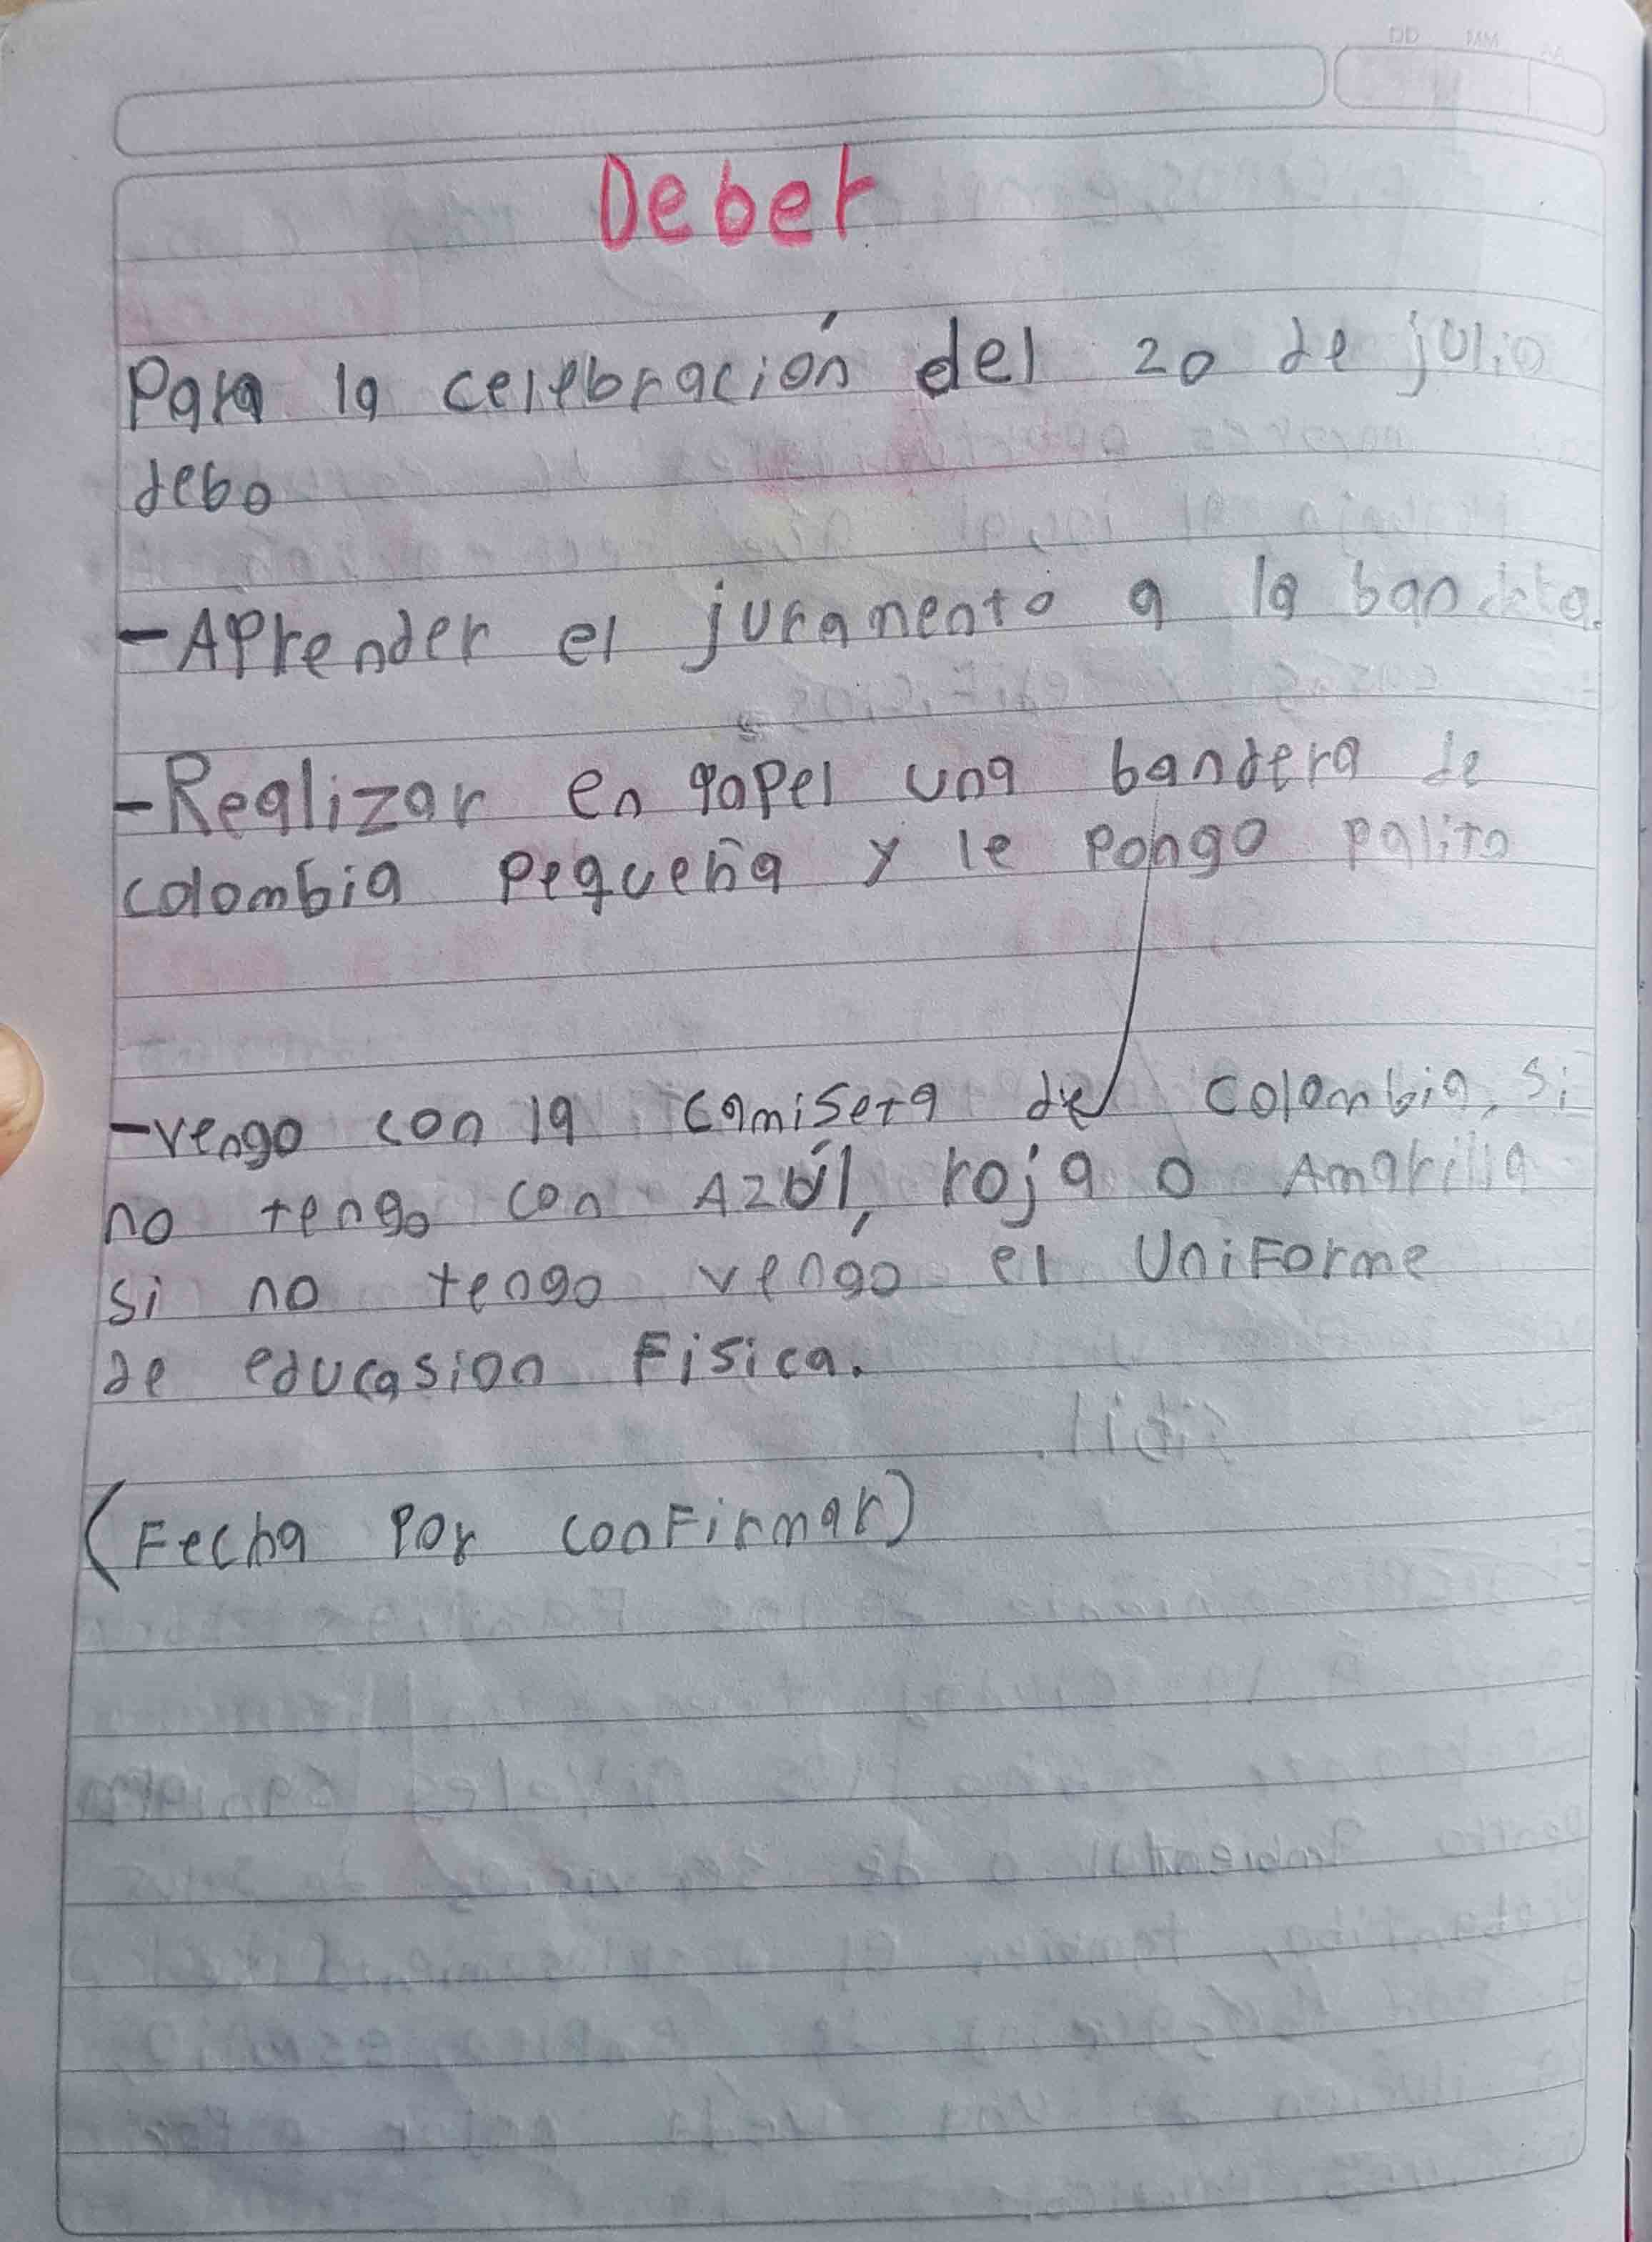 Deber
Para la celebración del 20 de julio
debo
-Aprender el juramento a la bandera.
-Realizar en papel una bandera de
colombia pequeña y le pongo palito
-vengo con la camiseta de colombia, si
no tengo con Azúl, roja o Amarilla
si no tengo vengo el UniForme
de educasion Fisica.
(Fecha Por conFirmar)